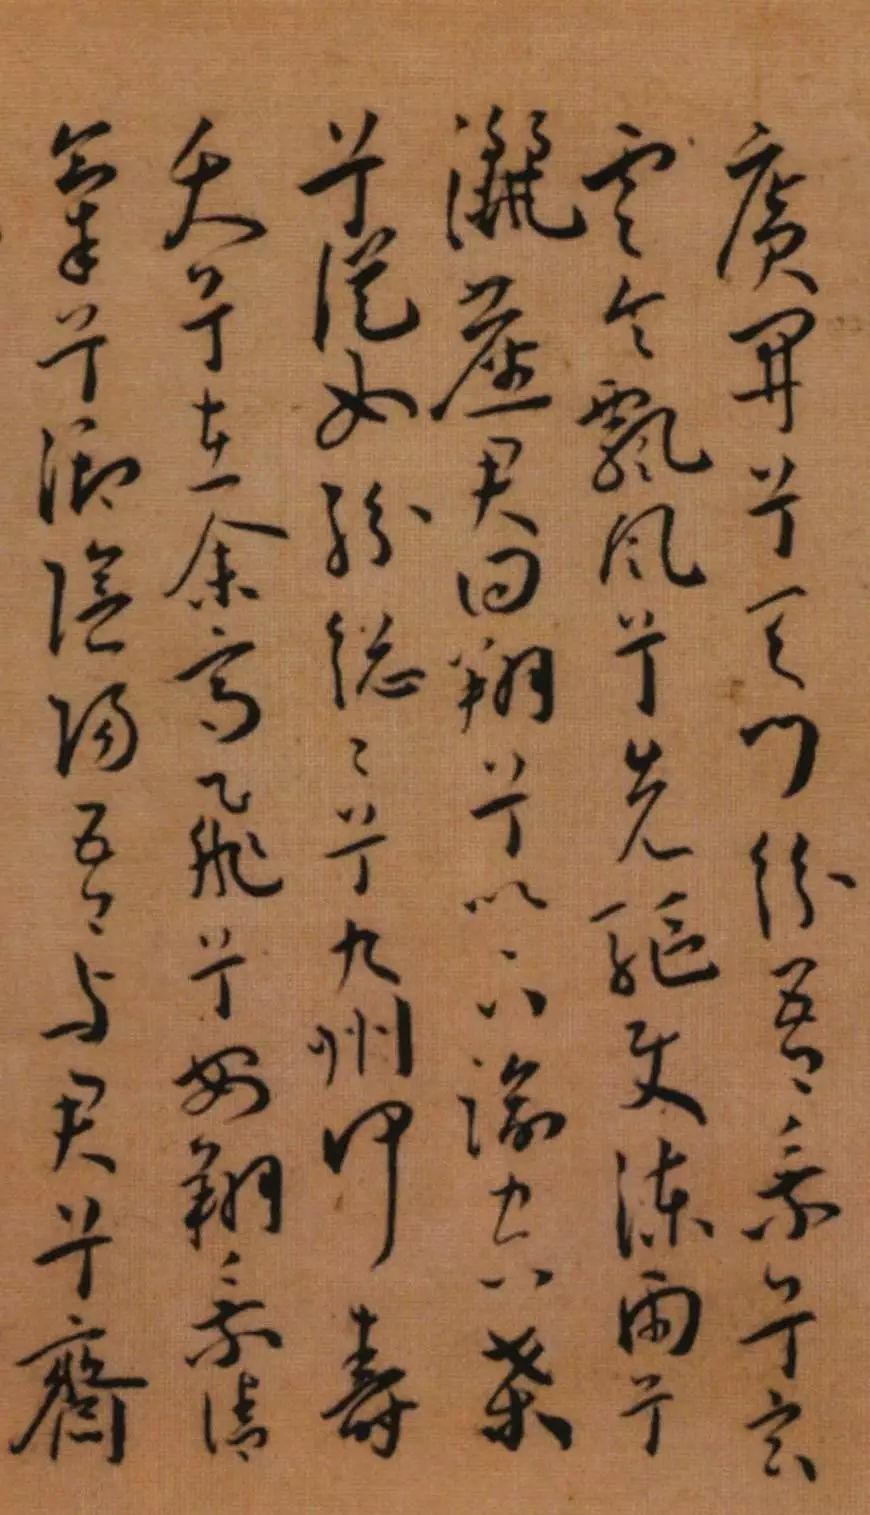 廣開兮天門紛吾乘兮玄
雲令飄風兮先驅使涷雨兮
灑塵君回翔兮以下踰空桑
兮從女紛總〻兮九州何壽
夭兮在余高飛兮安翔乘清
氣兮御陰陽吾与君兮齋